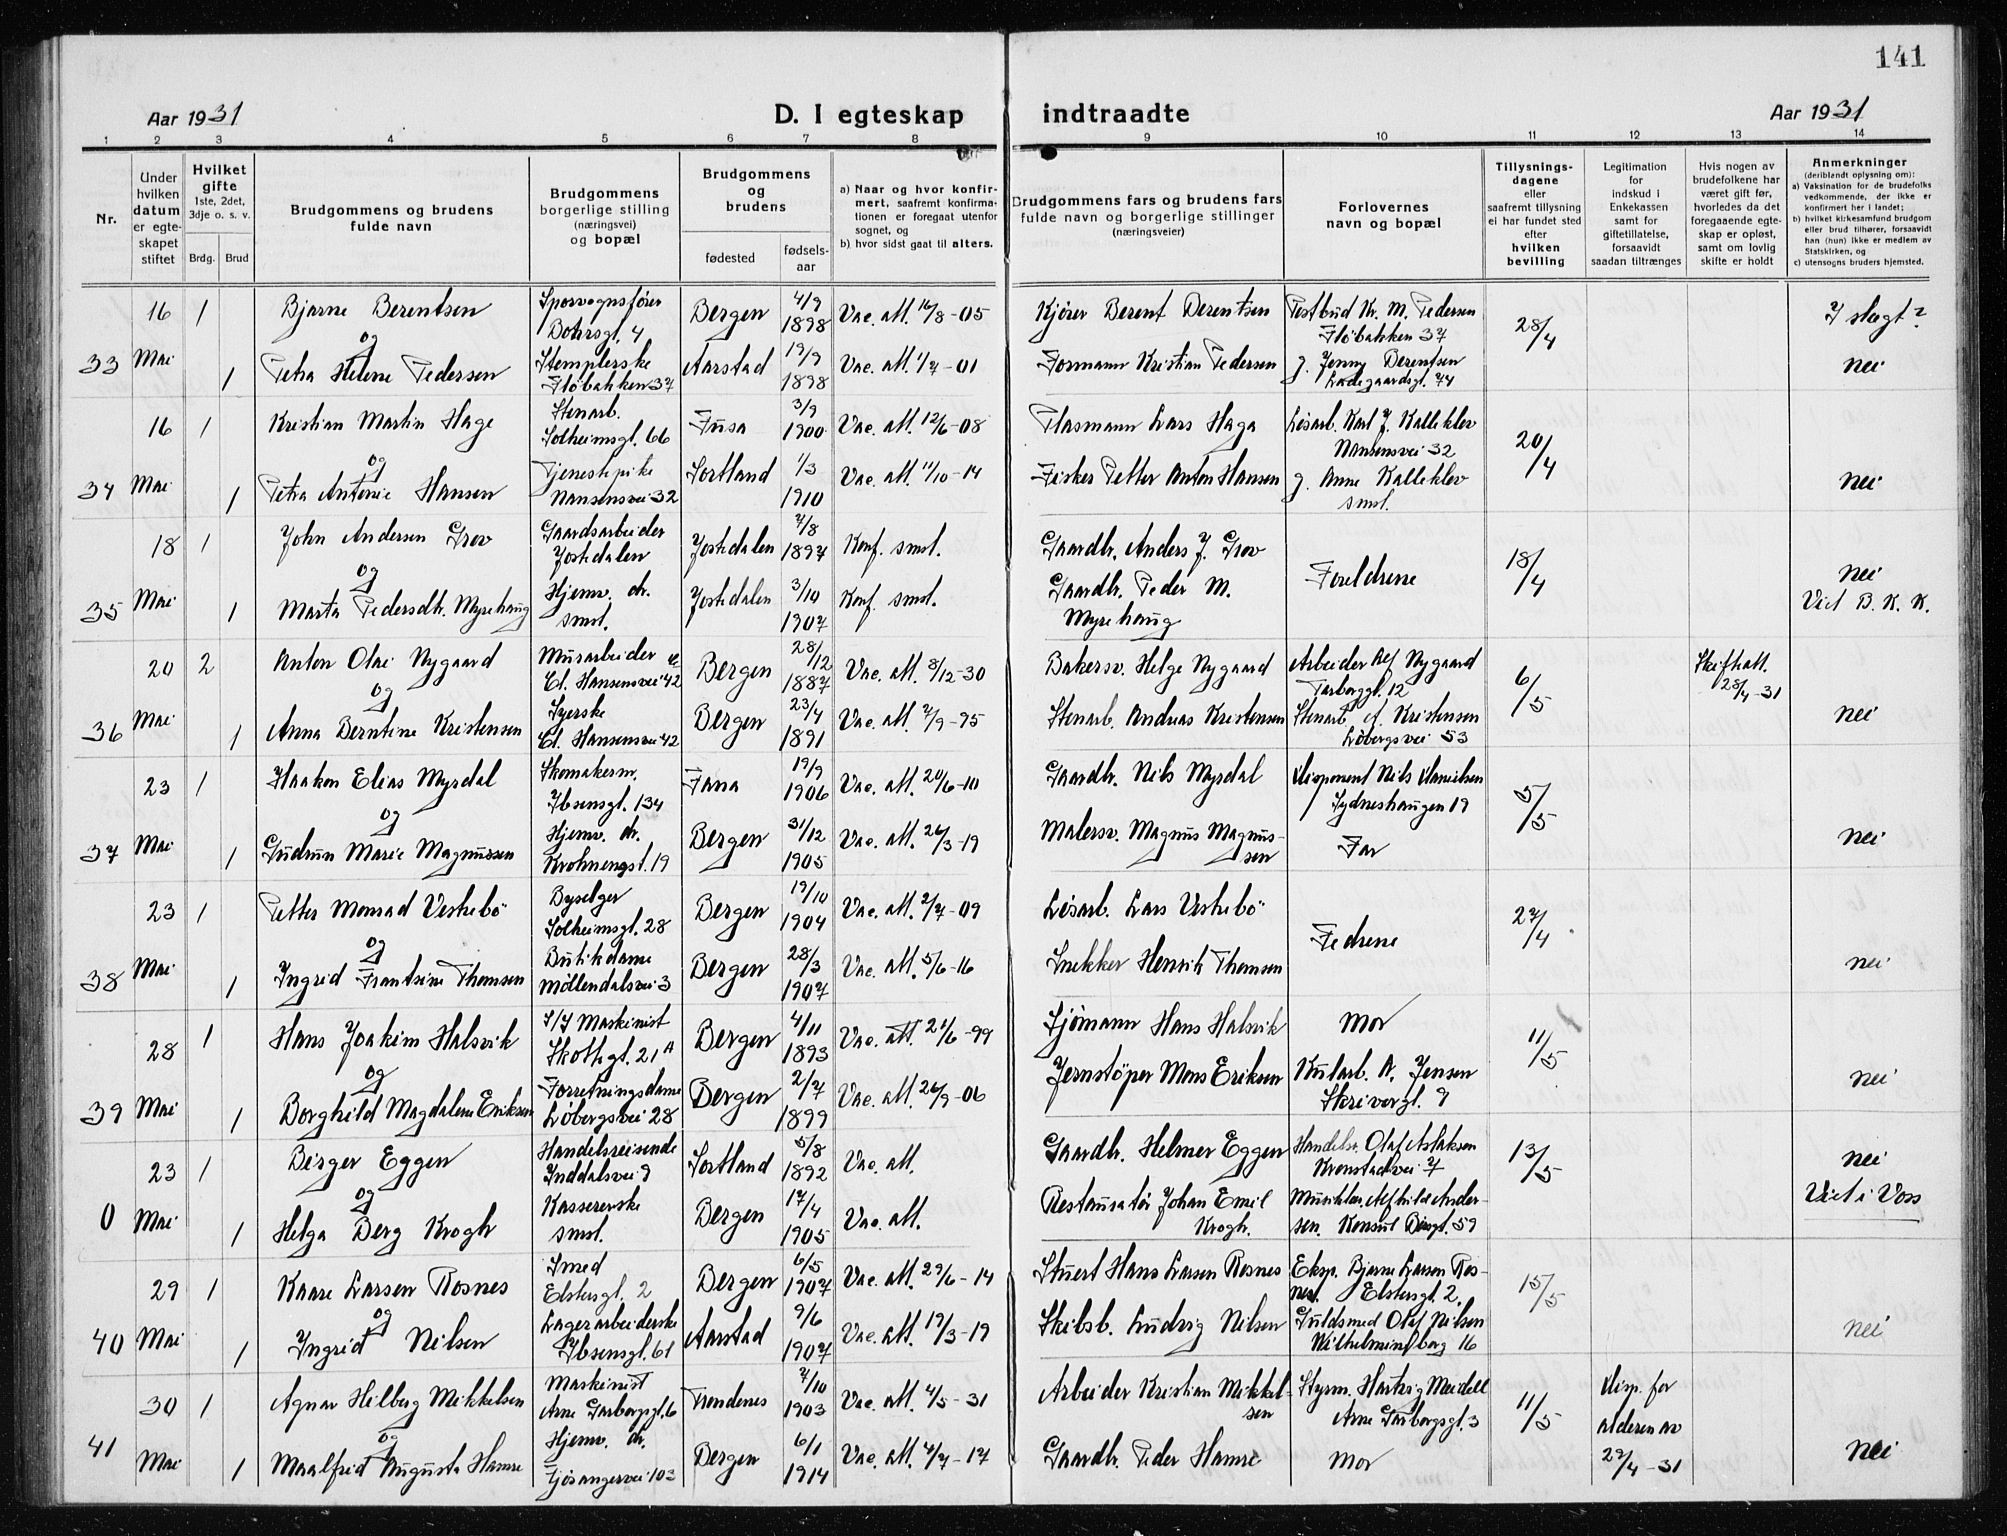 141
Aar 1931 D. I egteskap indtraadte Aar 1931
1 2 3 4 5 6 7 8 9 10 11 12 13 14
Nr.
Under hvilken datum er egte-skapet stiftet
Hvilket gifte 1ste, 2det, 3dje o. s. v.
Brdg. Brud
Brudgommens og brudens fulde navn
Brudgommens borgerlige stilling (næringsvei) og bopæl
Brudgommens og brudens
fødested fødsels-aar
a) Naar og hvor konfir-mert, saafremt konfirma-tionen er foregaat utenfor sognet, og
b) hvor sidst gaat til alters.
Brudgommens fars og brudens fars fulde navn og borgerlige stillinger (næringsveier)
Forlovernes navn og bopæl
Tillysnings-dagene eller saafremt tillysning ei har fundet sted efter hvilken bevilling
Legitimation for indskud i Enkekassen samt for giftetillatelse, forsaavidt saadan tiltrænges
Hvis nogen av brudefolkene har været gift før, hvorledes da det foregaaende egte-skap er opløst, samt om lovlig skifte er holdt
Anmerkninger (deriblandt oplysning om):
a) Vaksination for de brudefolks vedkommende, der ikke er konfirmert her i landet;
b) hvilket kirkesamfund brudgom eller brud tilhører, forsaavidt han (hun) ikke er medlem av Statskirken, og
c) utensogns bruders hjemsted.
16 1 Bjarne Berentsen Sporvognsfører Dohrsgt. 4 Bergen 4/9 1898 Vac. att. 16/8-05 Kjører Berent Berentsen Postbud Kr. M. Pedersen Fløbakken 37 28/4 I slegt?
og
33 Mai 1 Petra Helene Pedersen Stemplerske Fløbakken 37 Aarstad 19/9 1898 Vac. att. 1/7-01 Formann Kristian Pedersen g. Jenny Berentsen Ladegaardsgt. 74 nei
16 1 Kristian Martin Hage Stenarb. Solheimsgt. 66 Fusa 3/9 1900 Vac. att. 12/6-08 Plasmann Lars Haga Løsarb. Karl J. Kalleklev Nansensvei 32 20/4
og
34 Mai 1 Petra Antonie Hansen Tjenestepike Nansensvei 32 Sortland 1/3 1910 Vac. att. 11/10-14 Fisker Petter Anton Hansen g. Anne Kalleklev smst. nei
18 1 John Andersen Grov Gaardsarbeider Jostedalen Jostedalen 7/8 1897 Konf. smst. Gaardbr. Anders J. Grov Foreldrene 18/4 nei
og
35 Mai 1 Marta Pedersdtr. Myrehaug Hjemv. dr. smst. Jostedalen 3/10 1907 Konf. smst. Gaardbr. Peder M. Myrehaug Viet B. K. K.
20 2 Anton Olai Nygaard Murarbeider Cl. Hansensvei 42 Bergen 28/12 1887 Vac. att. 8/12-30 Bakersv. Helge Nygaard Arbeider Alf Nygaard Torborggt. 12 6/5 Skifteatt. 28/4-31
og
36 Mai 1 Anna Berntine Kristensen Syerske Cl. Hansensvei 42 Bergen 23/4 1891 Vac. att. 7/9-95 Stenarb. Andreas Kristensen Stenarb. A. Kristensen Løbergsvei 53 nei
23 1 Haakon Elias Myrdal Skomakerm. Ibsensgt. 134 Fana 19/9 1906 Vac. att. 20/6-10 Gaardbr. Nils Myrdal Disponent Nils Danielsen Sydneshaugen 19 5/5
og
37 Mai 1 Gudrun Marie Magnussen Hjemv. dr. Krohnengst. 19 Bergen 31/12 1905 Vac. att. 26/3-19 Malersv. Magnus Magnus-sen Far nei
23 1 Petter Monrad Vestrebö Byselger Solheimsgt. 28 Bergen 19/10 1904 Vac. att. 2/7-09 Løsarb. Lars Vestrebö Fedrene 27/4
og
38 Mai 1 Ingrid Frantsine Thomsen Butikdame Möllendalsvei 3 Bergen 28/3 1907 Vac. att. 5/6-16 Snekker Henrik Thomsen nei
28 1 Hans Joakim Halsvik S/S Maskinist Skottegt. 21 A Bergen 4/11 1893 Vac. att. 21/6-99 Sjömann Hans Halsvik Mor 11/5
og
39 Mai 1 Borghild Magdalene Eriksen Forretningsdame Løbergsvei 28 Bergen 2/7 1899 Vac. att. 26/9-06 Jernstöper Mons Eriksen Kularb. A. Jensen Skrivergt. 9 nei
23 1 Birger Eggen Handelsreisende Inddalsvei 9 Sortland 5/8 1892 Vac. att. Gaardbr. Helmer Eggen Handelsr. Olaf Aslaksen Kronstadvei 7 13/5 nei
og
0 Mai 1 Helga Berg Krogh Kassererske smst. Bergen 17/4 1905 Vac. att. Restauratör Johan Emil Krogh. Musiklær. Alfhild Ander-sen. Konsul Börsgt. 59 Viet i Voss
29 1 Kaare Larsen Rosnes Smed Elstersgt. 2 Bergen 6/5 1907 Vac. att. 29/6-14 Stuert Hans Larsen Rosnes Eksp. Bjarne Larsen Ros-nes. Elstersgt. 2. 15/5
og
40 Mai 1 Ingrid Nilsen Lagerarbeiderske Ibsensgt. 61 Aarstad 9/6 1907 Vac. att. 19/3-19 Skibsb. Ludvig Nilsen Guldsmed Olaf Nilsen Wilhelmineborg 16 nei
30 1 Agnar Hilberg Mikkelsen Maskinist Arne Garborgsgt. 6 Trondenes 7/10 1903 Vac. att. 4/5-31 Arbeider Kristian Mikkel-sen Styrm. Hartvig Meidell Arne Garborgsgt. 3 11/5 Disp. for alderen av 29/4-31
og
41 Mai 1 Maalfrid Augusta Hamre Hjemv. dr. Fjösangervei 103 Bergen 6/1 1914 Vac. att. 4/7-17 Gaardbr. Peder Hamre Mor nei